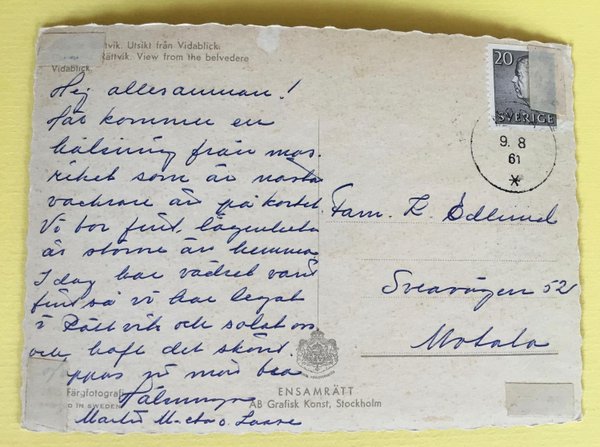 ttvik. Utsikt från Vidablick.
Rättvik. View from the belvedere
Vidablick.
Hej allesamman!
Här kommer en
hälsning från mas-
riket som är nästa
vackrare än på kortet
Vi bor fint, lägenheten
är större än hemma
I dag har vädret varit
fint så vi har legat
i Rättvik och solat oss
och haft det skönt.
ni mår bra
Hälsningar
Martin M-cta o Lasse
20
SVERIGE
9. 8
61
Fam. E. Ödlund
Sveavägen 52
Motala
Färgfotografi
D IN SWEDEN
ENSAMRÄTT
AB Grafisk Konst, Stockholm